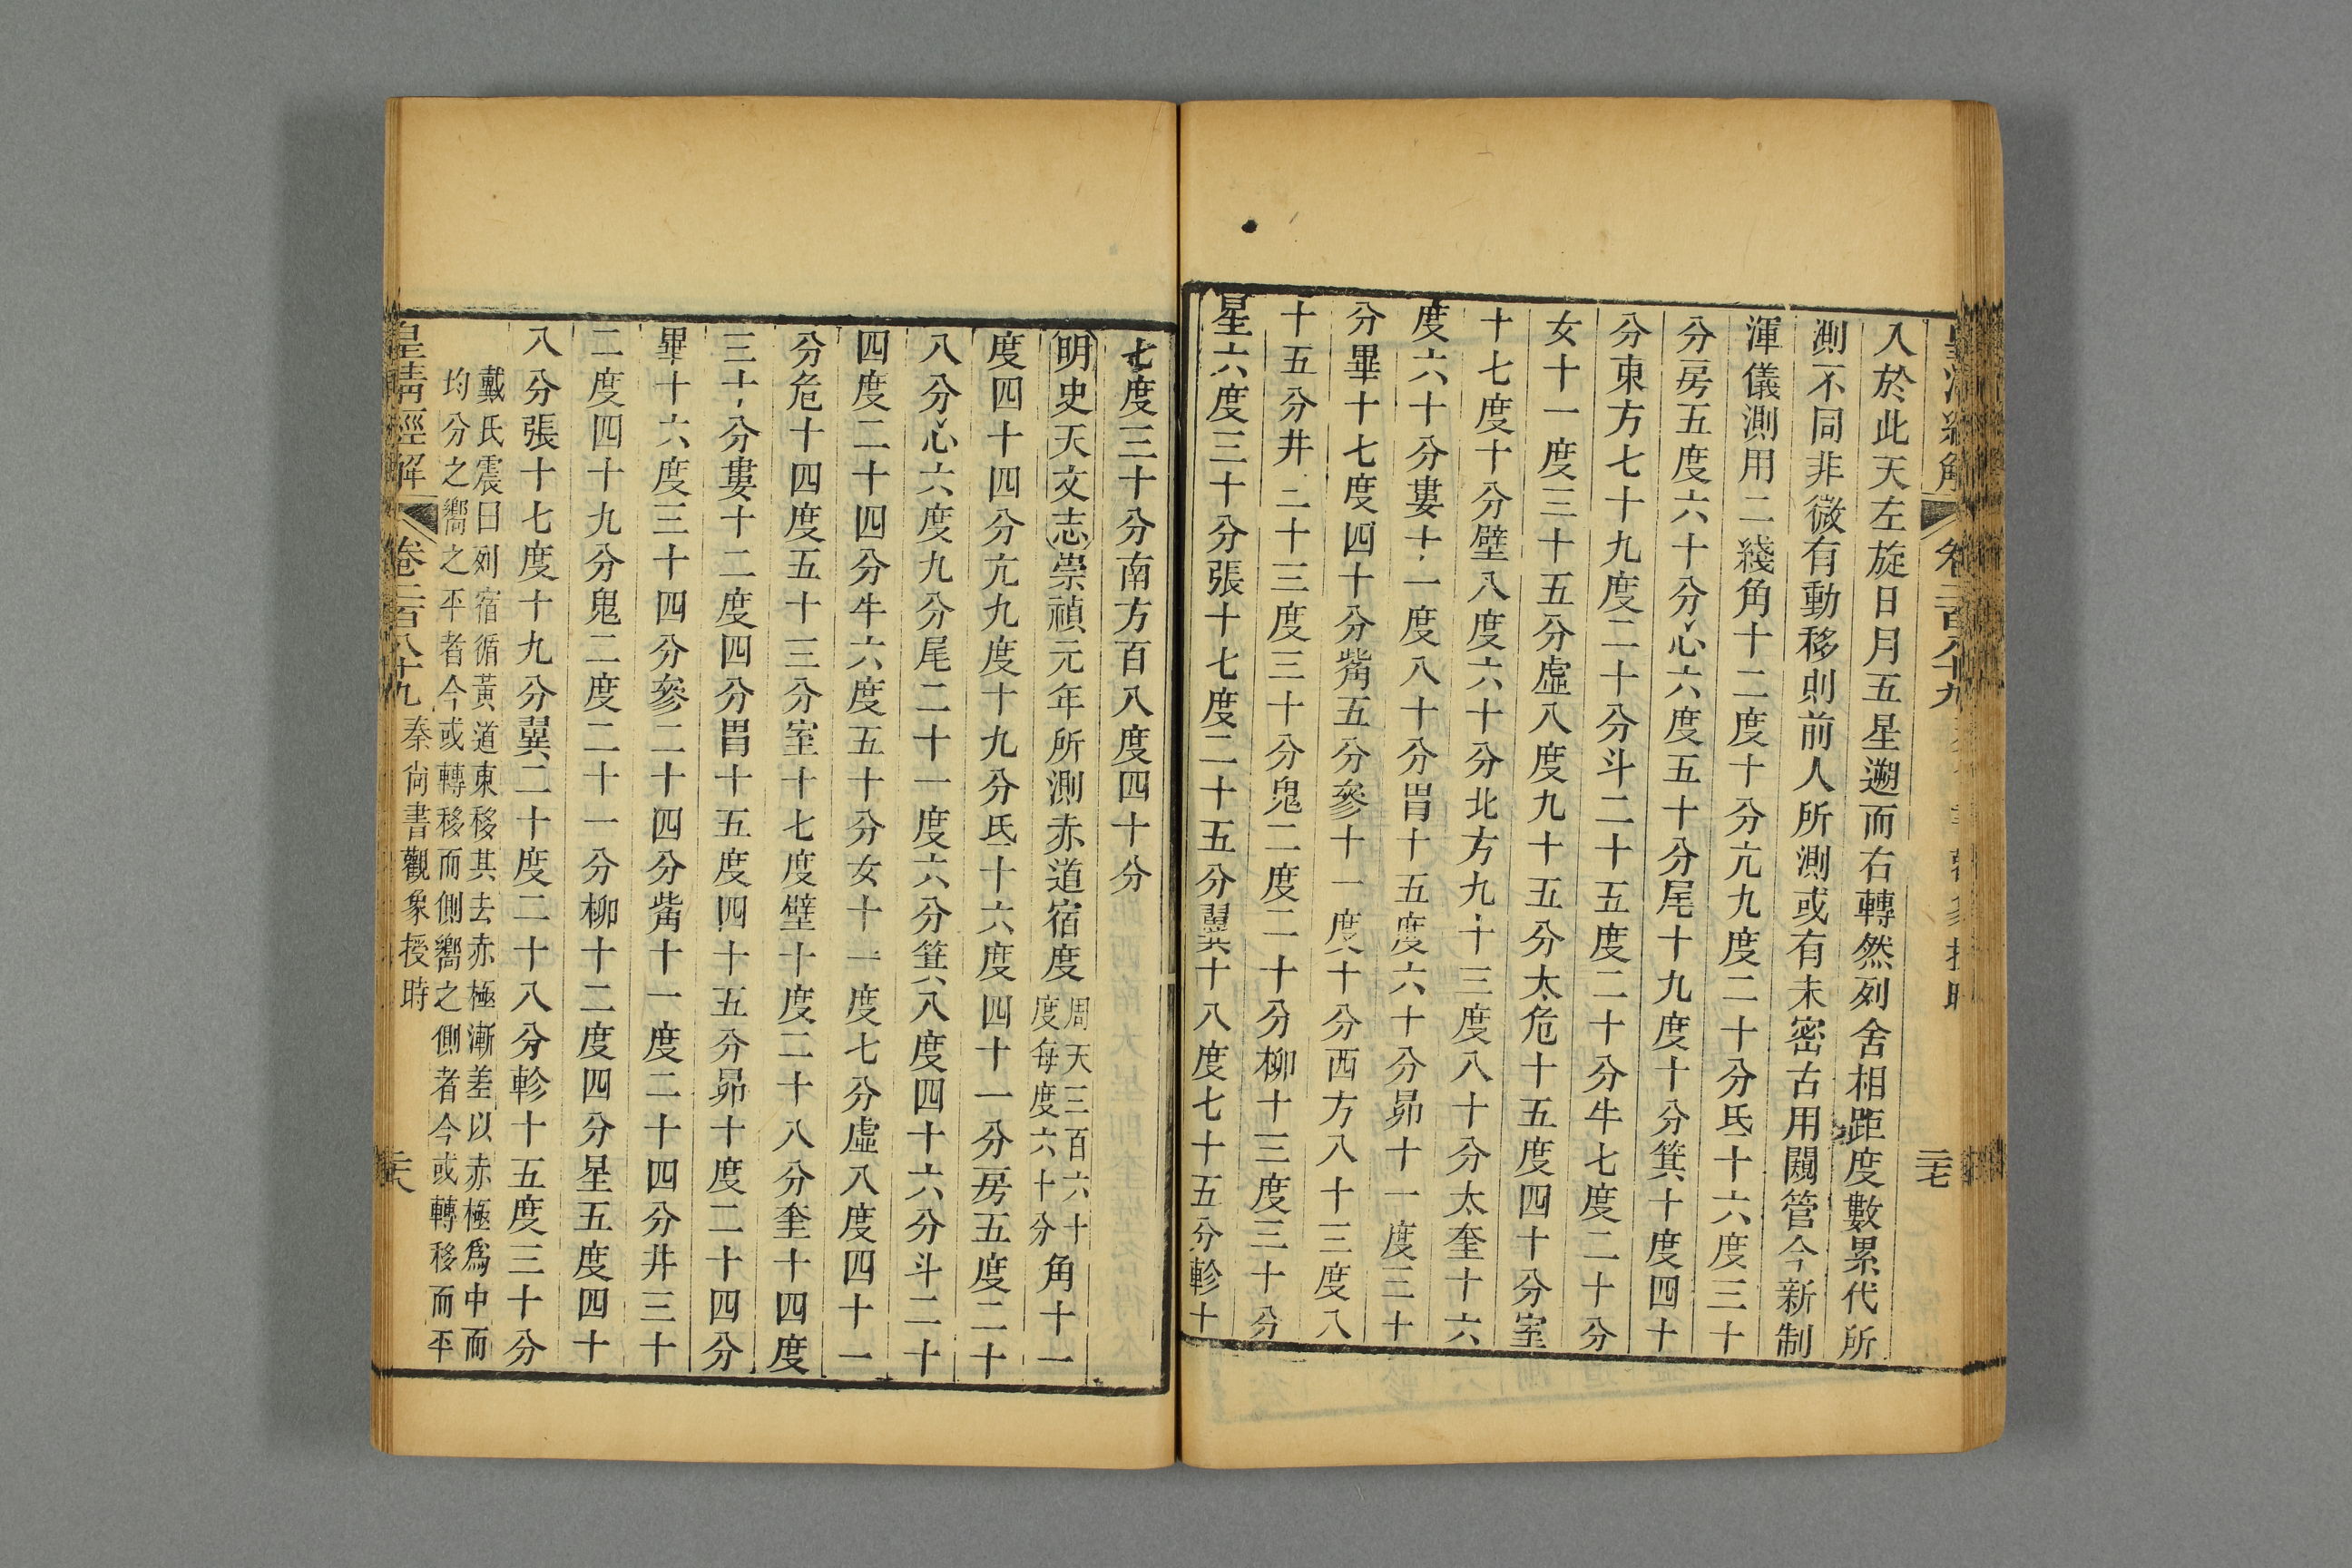 入於此天左旋日月五星遡而右轉然列舍相距度數累代所
測不同非微有動移則前人所測或有未密古用闚管今新制
渾儀測用二綫角十二度十分亢九度二十分氐十六度三十
分房五度六十分心六度五十分尾十九度十分箕十度四十
分東方七十九度二十分斗二十五度二十分牛七度二十分
女十一度三十五分虛八度九十五分太危十五度四十分室
十七度十分壁八度六十分北方九十三度八十分太奎十六
度六十分婁十一度八十分胃十五度六十分昴十一度三十
分畢十七度四十分觜五分參十一度十分西方八十三度八
十五分井二十三度三十分鬼二度二十分柳十三度三十分
星六度三十分張十七度二十五分翼十八度七十五分軫十
七度三十分南方百八度四十分
明史天文志崇禎元年所測赤道宿度周天三百六十度每度六十分角十一
度四十四分亢九度十九分氐十六度四十一分房五度二十
八分心六度九分尾二十一度六分箕八度四十六分斗二十
四度二十四分牛六度五十分女十一度七分虛八度四十一
分危十四度五十三分室十七度壁十度二十八分奎十四度
三十分婁十二度四分胃十五度四十五分昴十度二十四分
畢十六度三十四分參二十四分觜十一度二十四分井三十
二度四十九分鬼二度二十一分柳十二度四分星五度四十
八分張十七度十九分翼二十度二十八分軫十五度三十分
戴氏震曰列宿循黃道東移其去赤極漸差以赤極爲中而
均分之嚮之平者今或轉移而側嚮之側者今或轉移而平
皇清經解 卷二百八十九 秦尚書觀象授時 三六